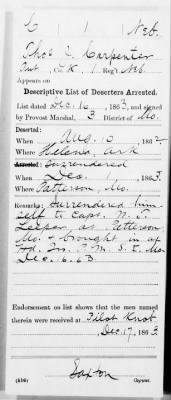 C 1 Neb.
Thos C Carpenter
Pvt, Co. K, 1 Reg't Neb.
Appears on
Descriptive List of Deserters Arrested.
List dated Dec. 16, 1863, and signed
by Provost Marshal, 3 District of Mo.
Deserted:
When Aug. 10, 1862.
Where Helena, Ark
Arrested: Surrendered
When Dec. 1, 1863.
Where Patterson, Mo.
Remarks: Surrendered him
self to Capt. W. T.
Leeper at Patterson
Mo. & brought in at
Hd. Qr. P. M. S. E. Mo
Dec. 16. 63
Endorsement on list shows that the men named
therein were received at Pilot Knob
Dec. 17, 1863
Saxton
(456) Copyist.